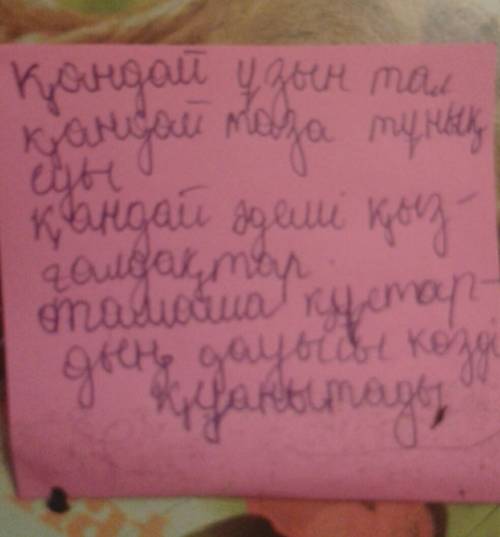 қандай ұзын тал
қандай таза тұнық
еді
қандай әдемі қыз-
ғалдақтар.
тамаша құстар-
дың дауысы көзді
қуанытады